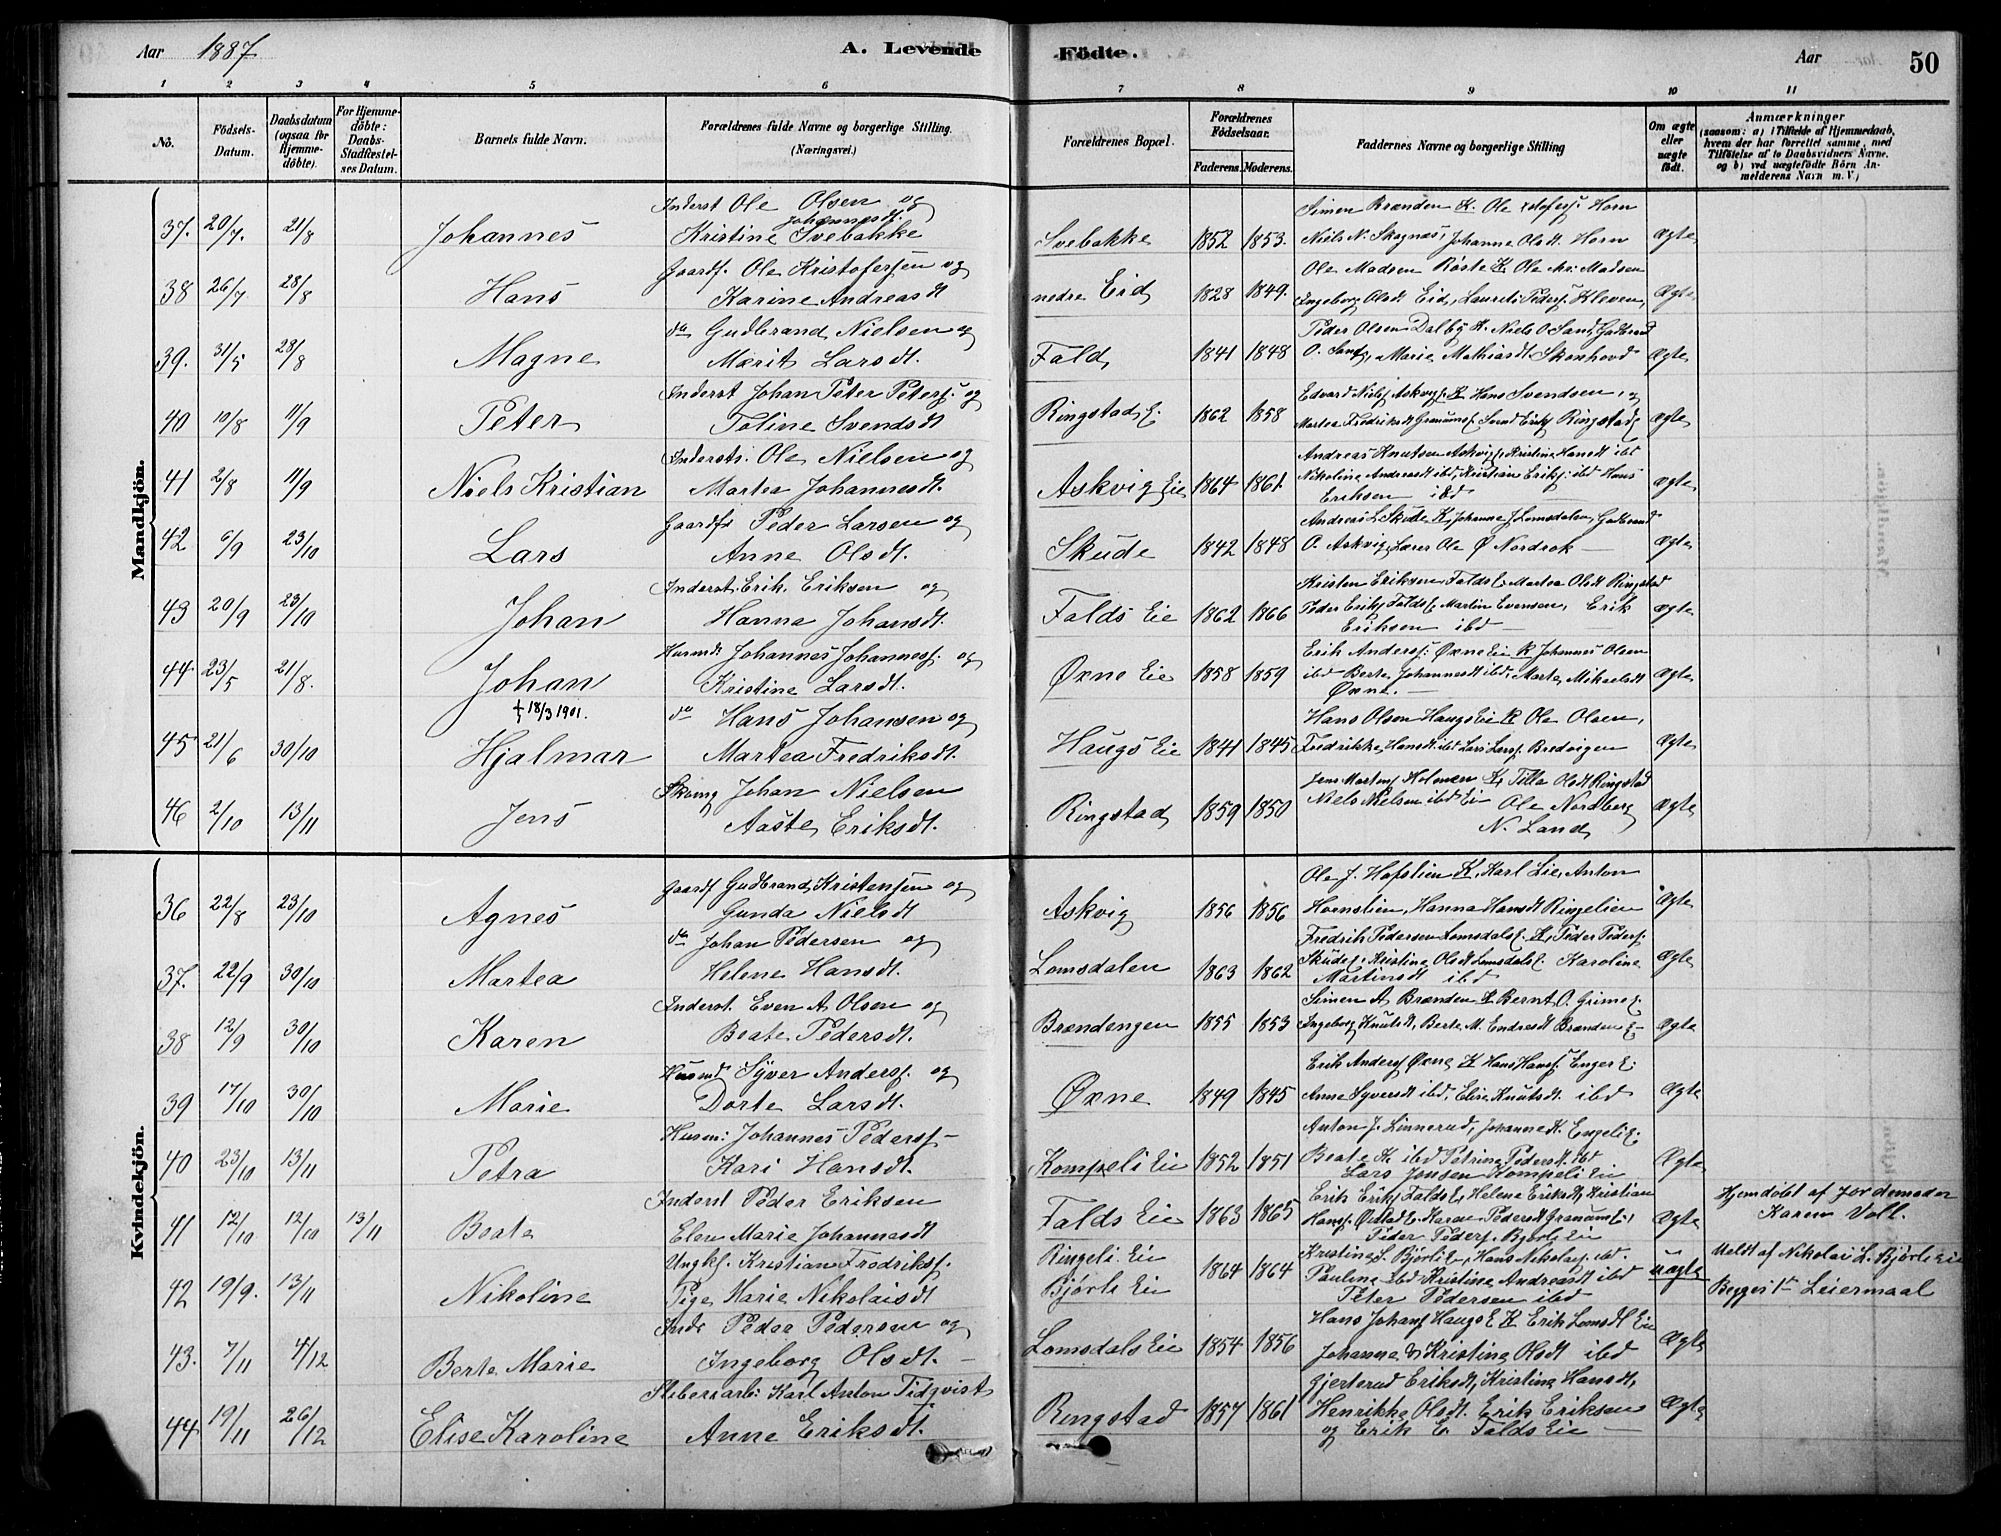 Aar 1887 A. Levende Fødte. Aar 50
1 2 3 4 5 6 7 8 9 10 11
No. Födsels-Datum. Daabsdatum (ogsaa for Hjemmedöbte). For Hjemmedöbte: Daabs-Stadfæstelses Datum. Barnets fulde Navn. Forældrenes fulde Navne og borgerlige Stilling. (Næringsvei.) Forældrenes Bopæl. Forældrenes Födselsaar. Faderens. Moderens. Faddernes Navne og borgerlige Stilling Om ægte eller uægte födt. Anmærkninger (saasom: a) i Tilfælde af Hjemmedaab, hvem der har forrettet samme, med Tilföielse af to Daabsvidners Navne, og b) ved uægtefödte Börn Anmelderens Navn m. V.)
Mandkjön.
Inderst Ole Olsen og Simen Brænden K. Ole Horn
37. 20/7. 21/8 Johannes Kristine Johannesdt. Svebakke Svebakke 1852 1853. Niels N. Skagnæs, Johanne Olsdt. Horn Ægte
Gaardf. Ole Kristofersen og Ole Madsen Røste K Ole Madsen
38 26/7 28/8 Hans Karine Andreasdt nedre Eid 1828 1849. Ingeborg Olsdt Eid, Laurits Peders. Kleven, Ægte
do Gudbrand Nielsen og Peder Olsen Dalby K. Niels O Sand, Gudbrand
39. 31/5 28/8 Magne Marit Larsdt. Fald 1841 1848 O. Sand, Marie Mathiasdt Skonhovd Ægte
Inderst Johan Peter Peters. og Edvard Niels. Askvigs. K Hans Svendsen, og
40 10/8 11/9 Peter Toline Svendsdt Ringstad E. 1862 1858 Martea Fredriksdt Granums. Svend Eriks. Ringstad, Ægte
Inderst. Ole Nielsen og Andreas Knutsen Askvig Kristine Hansdt ibd
41 2/8 11/9 Niels Kristian Martea Johannesdt. Askvig Eie 1864 1861. Nikoline Andreasdt ibd, Kristian Eriks. ibd Hans Eriksen ibd Ægte
Gaardf. Peder Larsen og Andreas L. Skude K, Johanne J. Lomsdalen, Gudbrand
42 6/9 23/10 Lars Anne Olsdt. Skude 1842 1848 O. Askvig, Lærer Ole Ø Nordrok Ægte
Inderst. Erik Eriksen og Kristen Eriksen Falds E. Martea Olsdt Ringstad
43 20/9 23/10 Johan Hanna Johansdt. Falds Eie 1862 1866 Peder Eriks. Falds E. Martin Evensen, Erik Eriksen ibd Ægte
Husmd. Johannes Johannes. og Erik Anders. Øxne Eie K Johannes Olsen
44. 23/5 21/8. Johan Kristine Larsdt. Øxne Eie 1858 1859 ibd Berte Johannesdt ibd, Marte Mikelsdt Øxne. Ægte
† 18/3 1901. do Hans Johansen og Hans Olsen Haugs Eie K Ole Olsen,
45 21/6 30/10 Hjalmar Martea Fredriksdt. Haugs Eie 1841 1845 Fredrikke Hansdt ibd Lars Lars. Bredvigen Ægte
Johan Nielsen Jens Martins. Holmen K, Tilla Olsdt Ringstad
46 2/10 13/11 Jens Aaste Eriksdt. Ringstad 1859 1850 Niels Nielsen ibd Eie Ole Nordberg N. Land Ægte
Kvindekjön.
Gaardf Gudbrand Kristensen og Ole J. Hofslien K, Karl Lie, Anton
36 22/8 23/10 Agnes Gunda Nielsdt Askvig 1856 1856 Hornslien, Hanna Hansdt Ringelien Ægte
do Johan Pedersen og Fredrik Pedersen Lomsdals E. K, Peder Peders.
37. 22/9 30/10 Martea Helene Hansdt. Lomsdalen 1863 1862 Skude, Kristine Olsdt Lomsdals E. Karoline Martinsdt ibd Ægte
Inderst. Even A. Olsen og Simen A. Brænden K Bernt O. Grime E.
38 12/9 30/10 Karen Beate Pedersdt. Brændengen 1855 1853 Ingeborg Knutsdt, Berte M. Endresdt Brænden E. Ægte
Husmd Syver Anders. og Erik Anders. Øxne K Hans Hans. Enger E.
39 17/10 30/10 Marie Dorte Larsdt. Øxne 1849 1845 Anne Syversdt ibd, Elise Knutsdt. ibd Ægte
Husm: Johannes Peders. Anton J. Linnerud, Johanne K. Engeli E.
40 23/10 13/11 Petra Kari Hansdt. Kompeli Eie 1852 1851 Beate K. ibd Petrine Pedersdt. ibd Lars Jensen Kompeli Eie Ægte
Inderst Peder Eriksen Erik Eriks. Falds E, Helene Eriksdt, Kristian
41 12/10 12/10 13/11 Beate Elen Marie Johannesdt Falds Eie 1863 1865 Hans. Karen Pedersdt Granum E, Peder Peders. Bjørli Eie Ægte Hjemdøbt af Jordemoder Karen Voll.
Ungk. Kristian Fredriks. Ringeli Eie Kristine S. Bjørli E, Hans Nikolais. ibd.
42 19/9. 13/11 Nikoline Pige Marie Nikolaisdt Bjørli Eie 1864 1864 Pauline ibd Kristine Andreasdt ibd Peter Pedersen ibd uægte Meldt af Nikolai L. Bjørli Eie Begges 1te Leiermaal
Inds Peder Pedersen og Hans Johans. Haugs E K Erik Lomsdl Eie
43. 7/11 4/12 Berte Marie Ingeborg Olsdt. Lomsdals Eie 1854 1856 Johanne & Kristine Olsdt ibd Ægte
Sliberiarb: Karl Anton Tidqvist Gjertrud Eriksdt, Kristine Hansdt,
44 19/11 26/12 Elise Karoline Anne Eriksdt. Ringstad 1857 1861 Henrikke Olsdt. Erik Eriksen og Erik E. Falds Eie Ægte